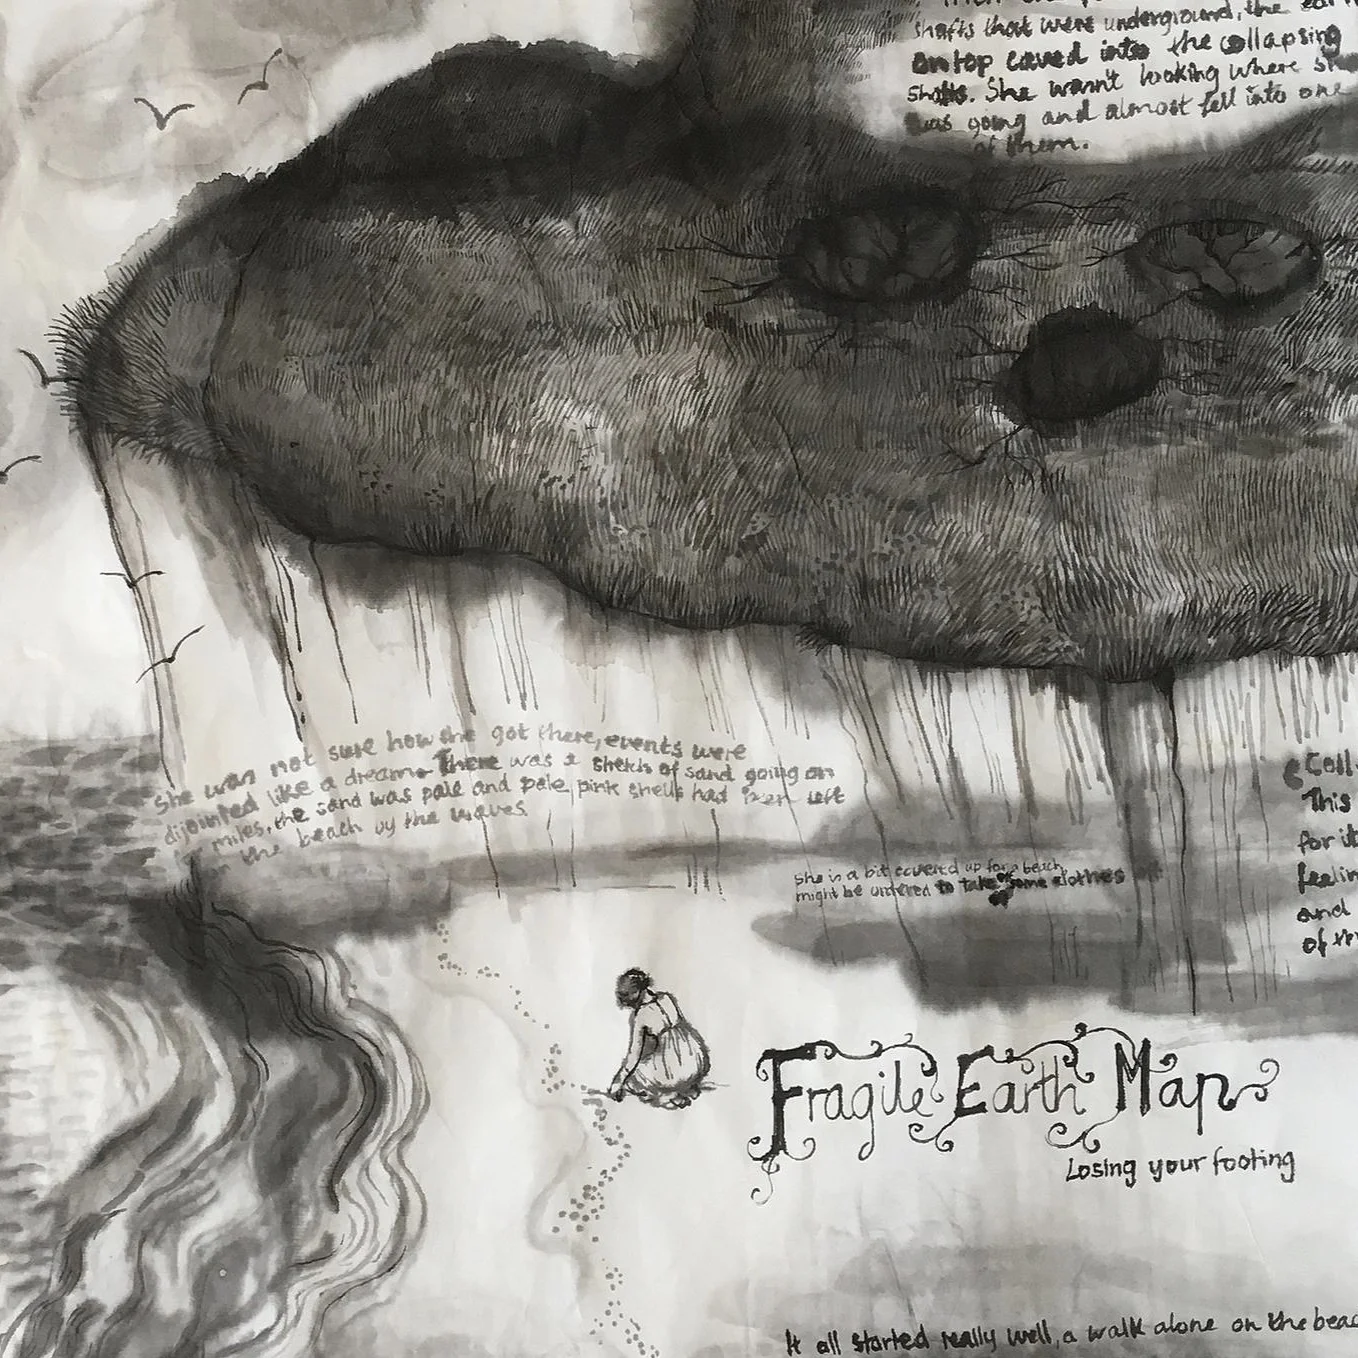 shafts that were underground, the
ontop caved into the collapsing
shafts. She wasn't looking where
was going and almost fell into one
of them.
She was not sure how she got there, events were
dijointed like a dream. There was a stretch of sand going on
miles, the sand was pale and pale pink shells had been left
the beach by the waves
She is a bit covered up for a beach,
might be ordered to take some clothes off
Coll
This
for it
feelin
and
of
Fragile Earth Map
Losing your footing
It all started really well, a walk alone on the beac